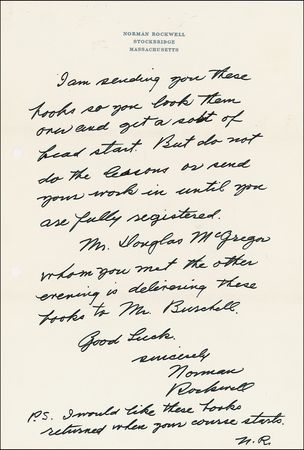 NORMAN ROCKWELL
STOCKBRIDGE
MASSACHUSETTS
I am sending you these
books so you look them
over and get a sort of
head start. But do not
do the leasons or send
your work in until you
are fully registered.
Mr. Douglas McGregor
whom you met the other
evening is delivering these
books to Mr. Burchell.
Good Luck.
sincerely
Norman
Rockwell
P.S. I would like these books
returned when your course starts.
N.R.